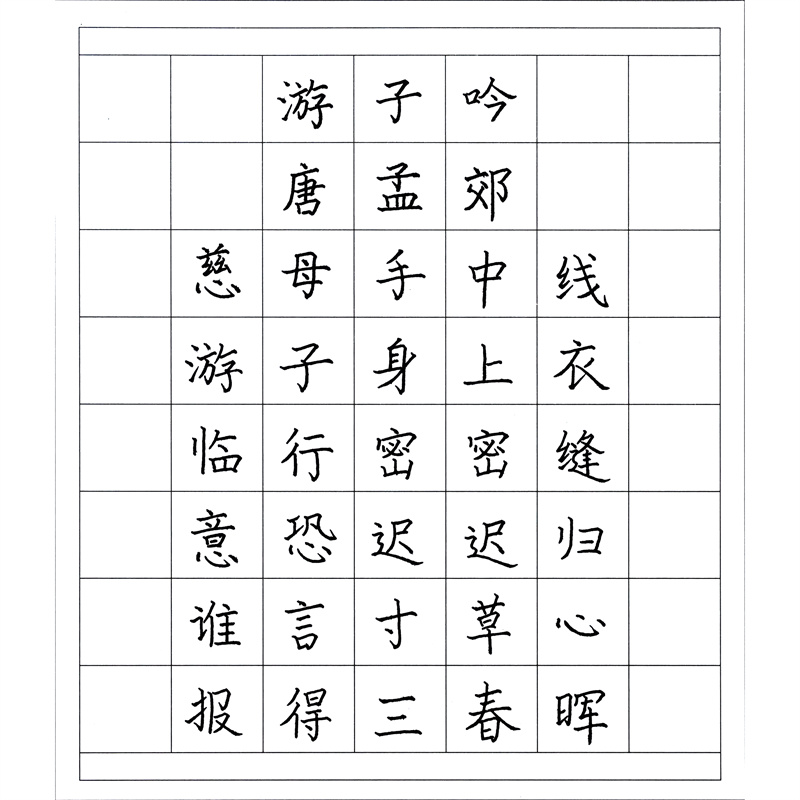 游子吟
唐孟郊
慈母手中线
游子身上衣
临行密密缝
意恐迟迟归
谁言寸草心
报得三春晖